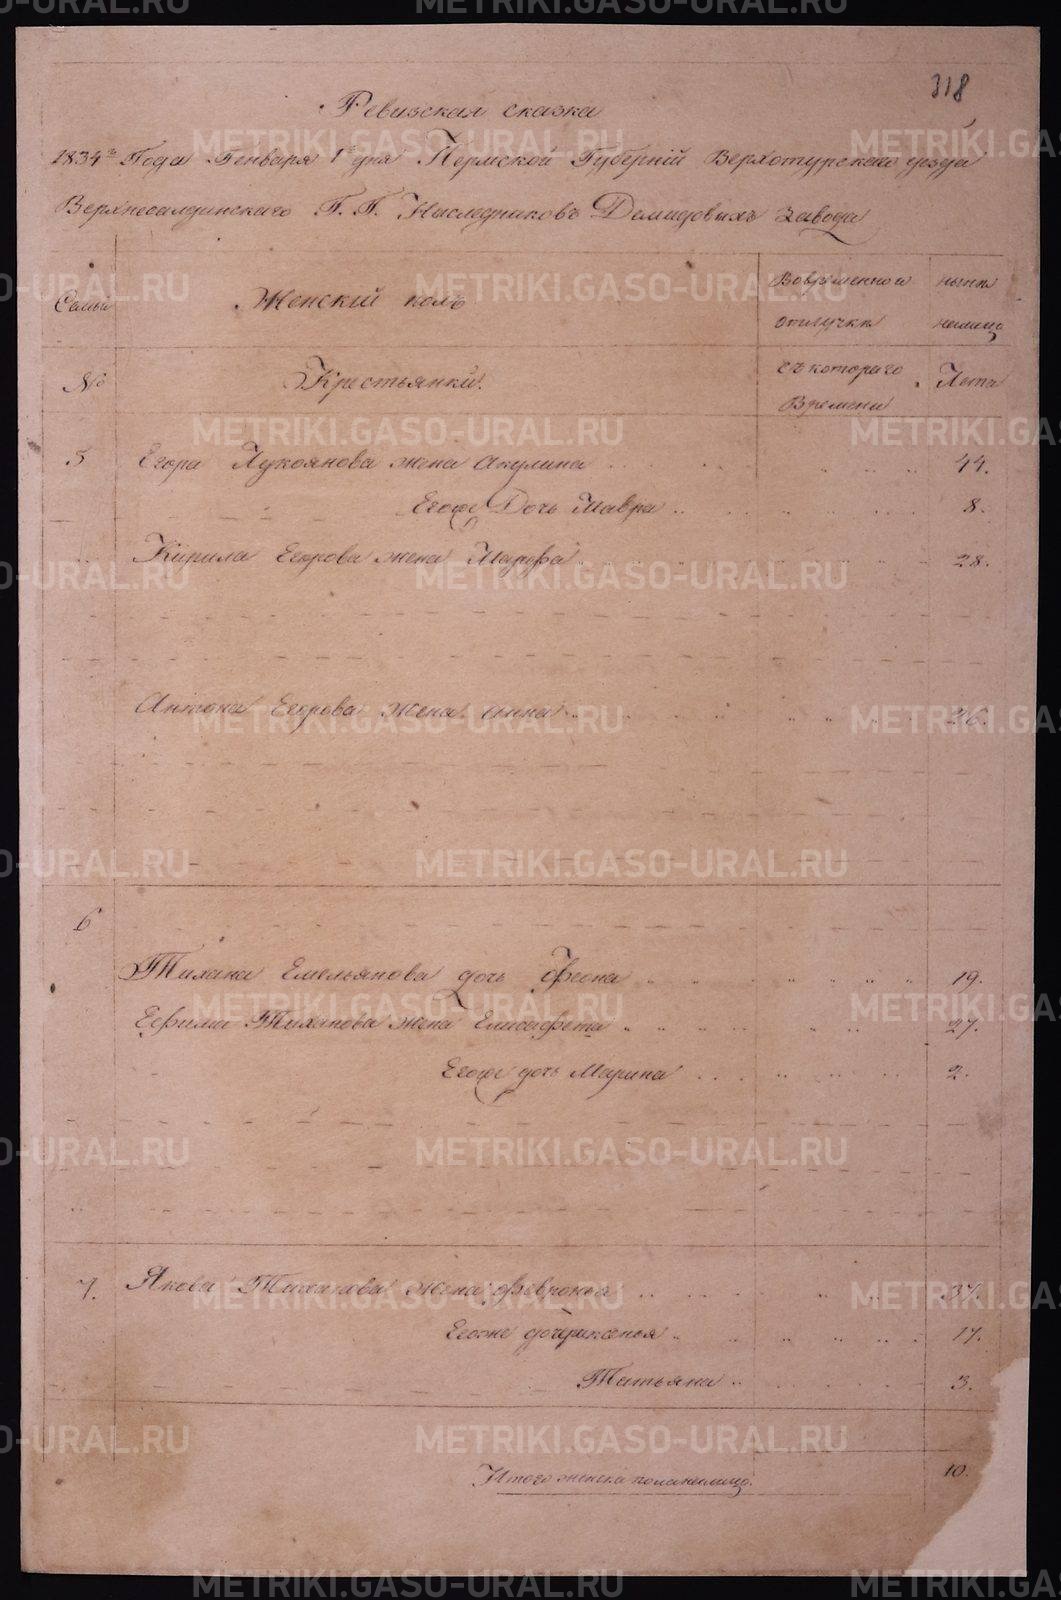 318
Ревизская сказка
1834го Года Генваря 1го дня Пермской Губернїй Верхотурскаго уезда
Верхнесалдинскаго Г. Г. Наследниковъ Демидовыхъ Завода
Семьи Женскїй полъ Вовременной отлучки ныне налицо
№ Крестьянки. съ котораго Времени Лета
5 Егора Лукоянова жена Акулина 44.
Егоже Дочь Мавра 8.
Кирила Егорова жена Марфа 28.
Антона Егорова жена Анна 26.
6
Тихана Емельянова дочь Феона 19.
Ефима Тиханова жена Елисафета 27.
Егоже дочь Марина 2.
7. Якова Тиханова жена Февронья 37.
Егоже дочери 17.
Татьяна 3.
Итого женска пола налицо. 10.
METRIKI.GASO-URAL.RU